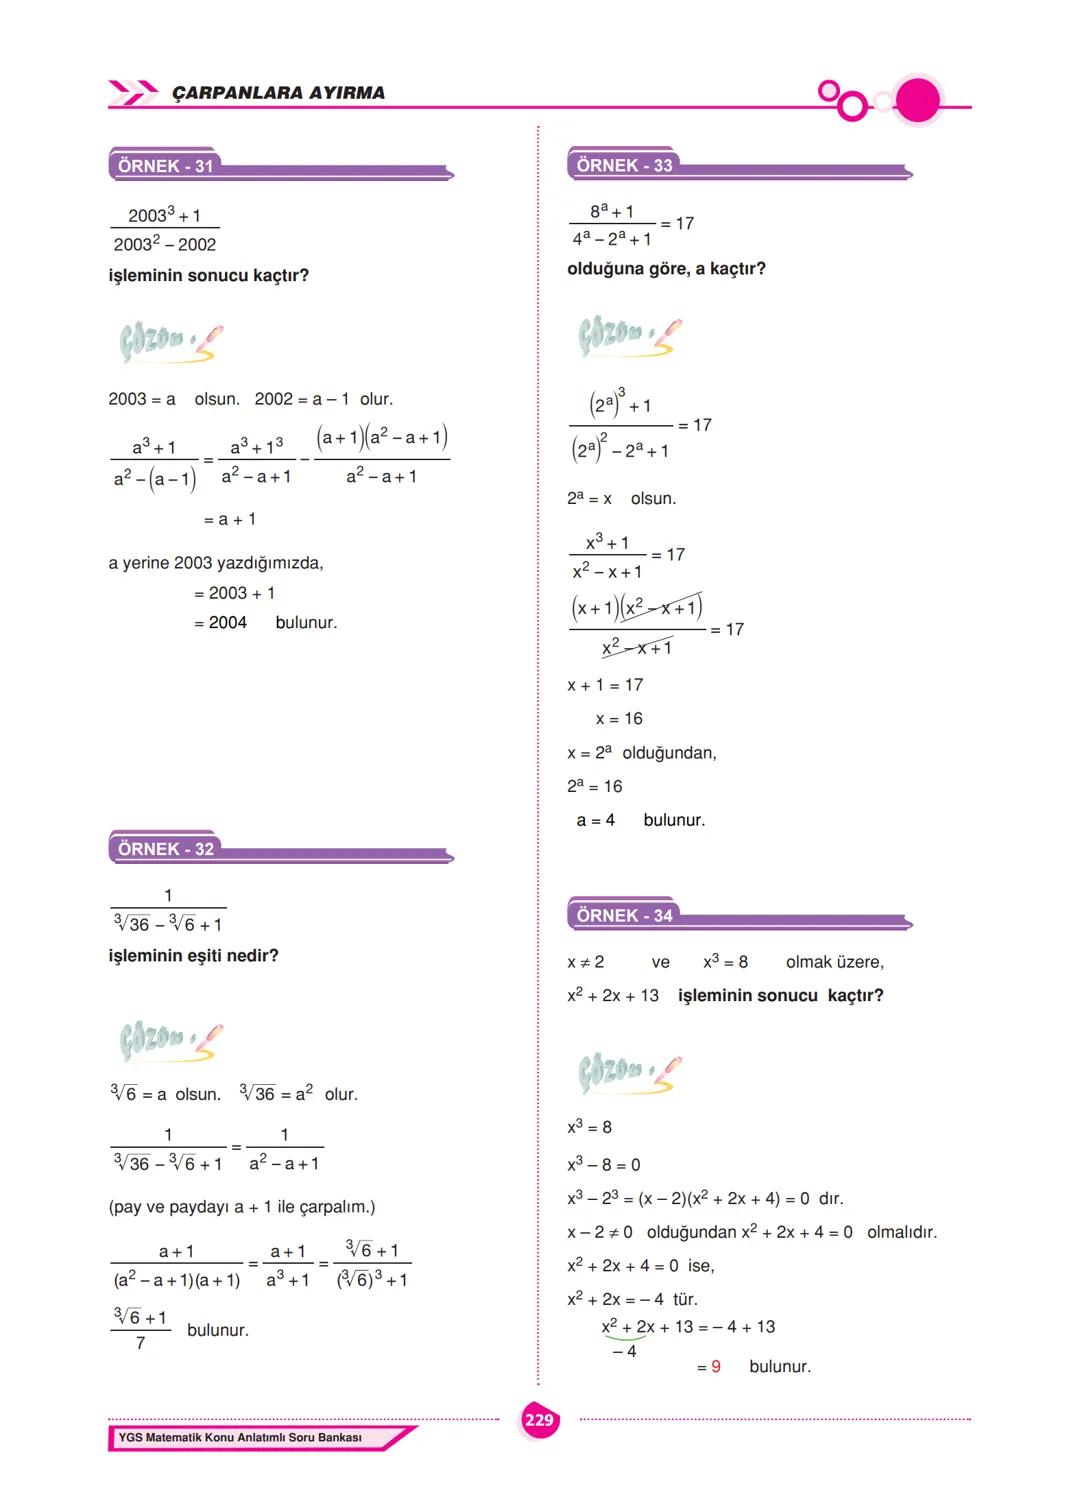 ÇARPANLARA AYIRMA
ÖRNEK - 31
2003³ + 1
2003² – 2002
işleminin sonucu kaçtır?
Çözüm
2003 = a olsun. 2002 = a – 1 olur.
a³ + 1 / a² – (a – 1) = a³ + 1³ / a² – a + 1 – (a + 1)(a² – a + 1) / a² – a + 1
= a + 1
a yerine 2003 yazdığımızda,
= 2003 + 1
= 2004 bulunur.
ÖRNEK - 32
1
³√36 – ³√6 + 1
işleminin eşiti nedir?
Çözüm
³√6 = a olsun. ³√36 = a² olur.
1 / ³√36 – ³√6 + 1 = 1 / a² – a + 1
(pay ve paydayı a + 1 ile çarpalım.)
a + 1 / (a² – a + 1)(a + 1) = a + 1 / a³ + 1 = ³√6 + 1 / (³√6)³ + 1
³√6 + 1 / 7 bulunur.
ÖRNEK - 33
8ᵃ + 1 / 4ᵃ – 2ᵃ + 1 = 17
olduğuna göre, a kaçtır?
Çözüm
(2ᵃ)³ + 1 / (2ᵃ)² – 2ᵃ + 1 = 17
2ᵃ = x olsun.
x³ + 1 / x² – x + 1 = 17
(x + 1)(x² – x + 1) / x² – x + 1 = 17
x + 1 = 17
x = 16
x = 2ᵃ olduğundan,
2ᵃ = 16
a = 4 bulunur.
ÖRNEK - 34
x ≠ 2 ve x³ = 8 olmak üzere,
x² + 2x + 13 işleminin sonucu kaçtır?
Çözüm
x³ = 8
x³ – 8 = 0
x³ – 2³ = (x – 2)(x² + 2x + 4) = 0 dır.
x – 2 ≠ 0 olduğundan x² + 2x + 4 = 0 olmalıdır.
x² + 2x + 4 = 0 ise,
x² + 2x = – 4 tür.
x² + 2x + 13 = – 4 + 13
– 4
= 9 bulunur.
229
YGS Matematik Konu Anlatımlı Soru Bankası